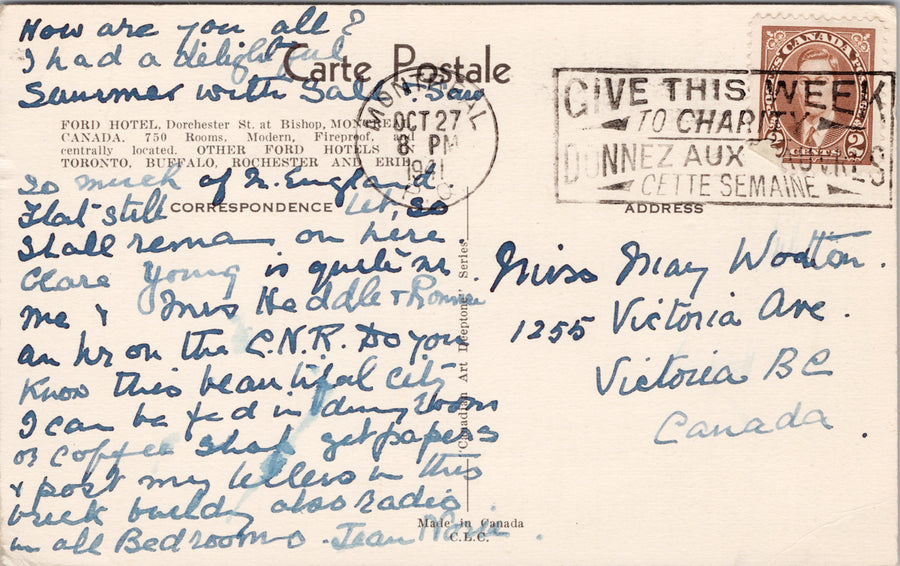 How are you all?
I had a delightful
Carte Postale
Summer with Sall. Saw
FORD HOTEL, Dorchester St. at Bishop, MONTREAL
CANADA. 750 Rooms. Modern, Fireproof, and
centrally located. OTHER FORD HOTELS
TORONTO, BUFFALO, ROCHESTER AND ERIE.
So much of N. England
that still
CORRESPONDENCE
Let, so
shall remain on here
Clare Young is quite nr
me & Mrs Heddle & Ronnie
an hr on the C.N.R. Do you
Know this beautiful city
I can be fed in dining Room
or Coffee Shop get papers
& post my letters in this
brick building also radio
in all Bedrooms. Jean
MONTREAL
OCT 27
8 PM
1941
GIVE THIS WEEK
TO CHARITY
DONNEZ AUX PAUVRES
CETTE SEMAINE
CANADA
2 CENTS 2
ADDRESS
Miss May Wootton.
1255 Victoria Ave.
Victoria BC
Canada.
"Canadian Art Deeptone" Series
Made in Canada
C.L.C.